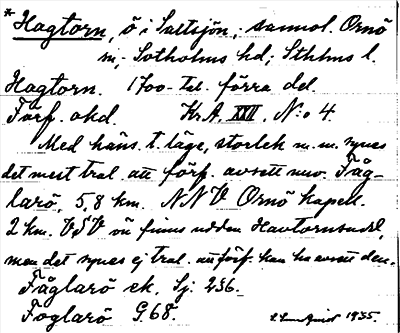 * Hagtorn, ö i Saltsjön; sannol. Ornö
sn, Sotholms hd; Sthlms l.
Hagtorn. 1700-tal. förra del.
Förf. okd. Kr. A. XVII, N:o 4.
Med häns. t. läge, storlek m. m. synes
det mest tral. att förf. avsett nuv. Fåg-
larö, 5,8 km. NNV Ornö kapell.
2 km. VSV om finnes udden Havtornsudd,
men det synes ej tral. att förf. kan ha avsett den.
Fåglarö ek. Sj: 236.
Föglarö G. 68.
1935.